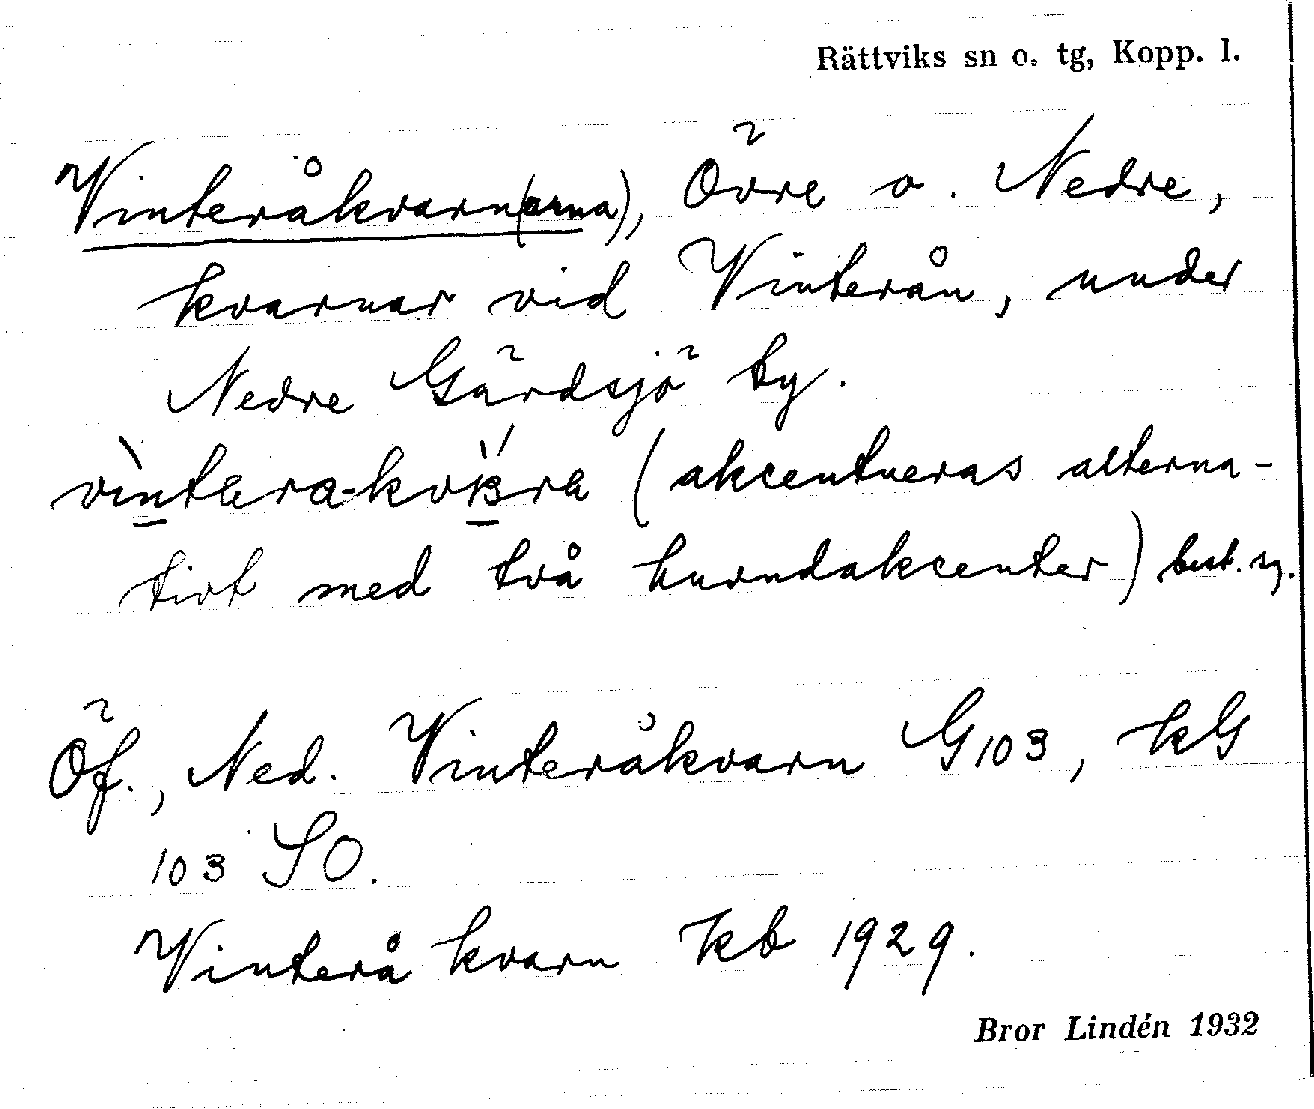 Rättviks sn o. tg, Kopp. l.
Vinteråkvarn(arna), Övre o. Nedre,
kvarnar vid Vinterån, under
Nedre Gärdsjö by.
(akcentueras alterna-
tivt med två huvudakcenter) best. sg.
Öf., Ned. Vinteråkvarn G103, KG
103 SO.
Vinterå kvarn kb 1929.
Bror Lindén 1932